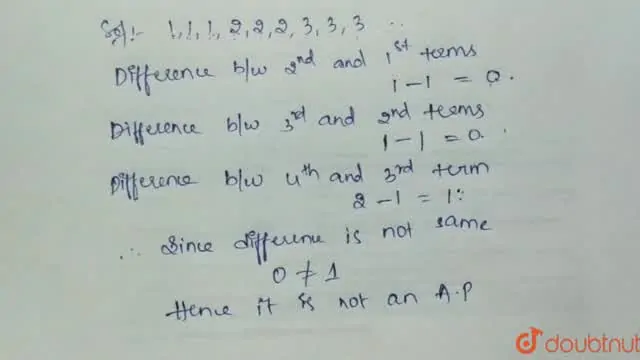 Sol:- 1, 1, 1, 2, 2, 2, 3, 3, 3 ..
Difference b/w 2nd and 1st terms
1 - 1 = 0.
Difference b/w 3rd and 2nd terms
1 - 1 = 0.
Difference b/w 4th and 3rd term
2 - 1 = 1.
∴ Since difference is not same
0 ≠ 1
Hence it is not an A.P
doubtnut